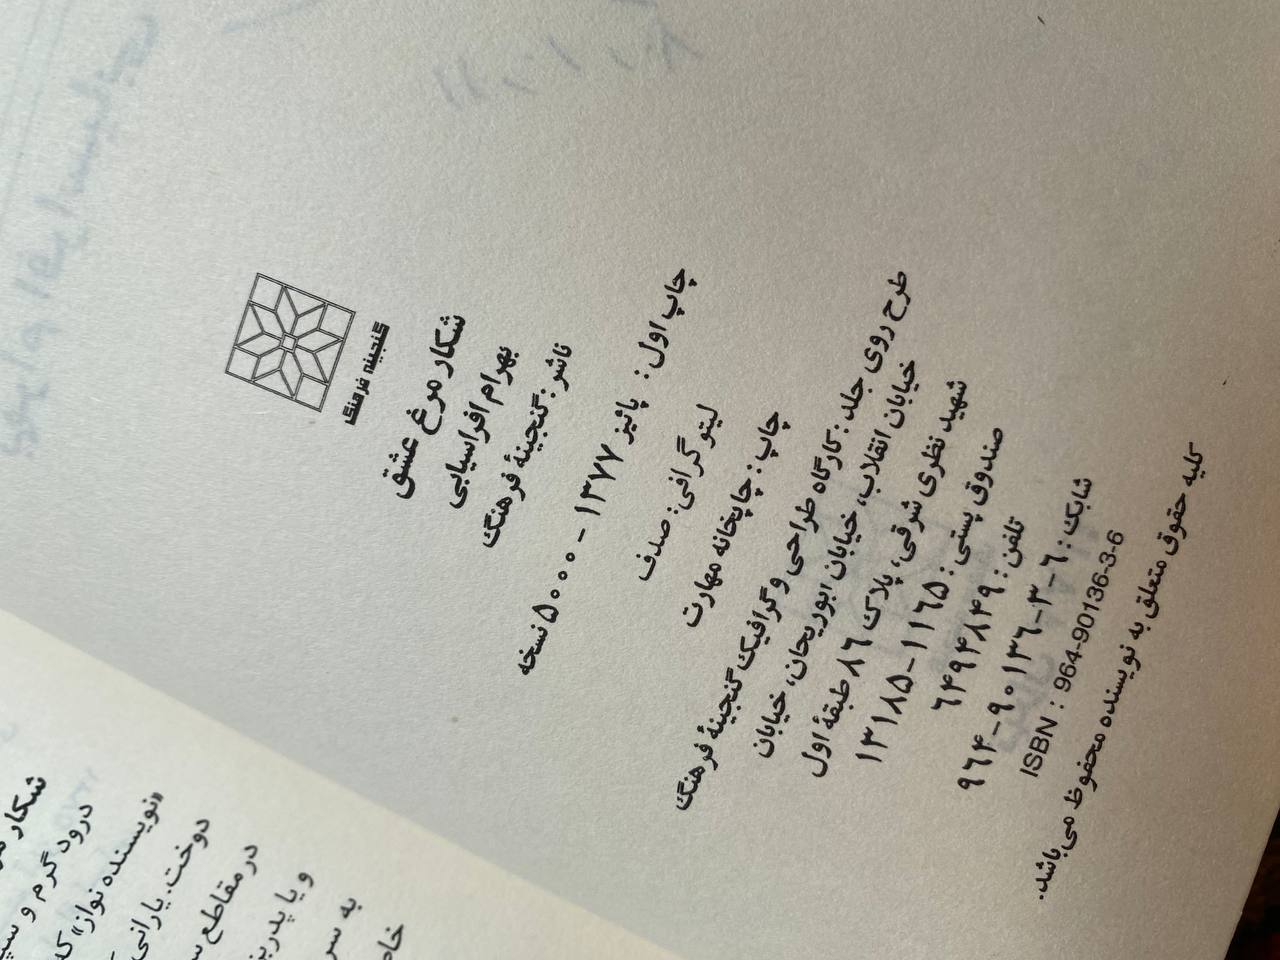 گنجینه فرهنگ
شکار مرغ عشق
بهرام افراسیابی
ناشر: گنجینهٔ فرهنگ
چاپ اول: پائیز ۱۳۷۷ - ۵۰۰۰ نسخه
لیتوگرافی: صدف
چاپ: چاپخانه مهارت
طرح روی جلد: کارگاه طراحی و گرافیک گنجینهٔ فرهنگ
خیابان انقلاب، خیابان ابوریحان، خیابان
شهید نظری شرقی، پلاک ۸۶ طبقهٔ اول
صندوق پستی: ۱۱۶۵-۱۳۱۸۵
تلفن: ۶۴۹۴۸۴۹
شابک: ۶-۳-۹۰۱۳۶-۹۶۴
ISBN : 964-90136-3-6
کلیه حقوق متعلق به نویسنده محفوظ می‌باشد.
شکار
درود گرم و
«نویسنده نواز»
دوخت. یارانی
در مقاطع
و یا پدر
به